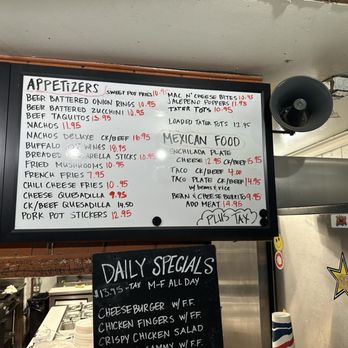 APPETIZERS
SWEET POT FRIES 10.95
BEER BATTERED ONION RINGS 10.95
BEER BATTERED ZUCCHINI 10.95
BEEF TAQUITOS 13.95
NACHOS 11.95
NACHOS DELUXE CK/BEEF 16.95
BUFFALO WINGS 18.95
BREADED MOZZARELLA STICKS 10.95
FRIED MUSHROOMS 10.95
FRENCH FRIES 7.95
CHILI CHEESE FRIES 10.95
CHEESE QUESADILLA 9.95
CK/BEEF QUESADILLA 14.50
PORK POT STICKERS 12.95
MAC N' CHEESE BITES 10.95
JALEPENO POPPERS 11.95
TATER TOTS 10.95
LOADED TATER TOTS 12.95
MEXICAN FOOD
ENCHILADA PLATE
CHEESE 12.95 CK/BEEF 15.95
TACO CK/BEEF 4.00
TACO PLATE CK/BEEF 14.95
W/ beans & rice
BEAN & CHEESE BURRITO 9.95
ADD MEAT 14.95
PLUS TAX
DAILY SPECIALS
$13.95 -TAX M-F ALL DAY
CHEESEBURGER W/F.F.
CHICKEN FINGERS W/F.F.
CRISPY CHICKEN SALAD
W/F.F.